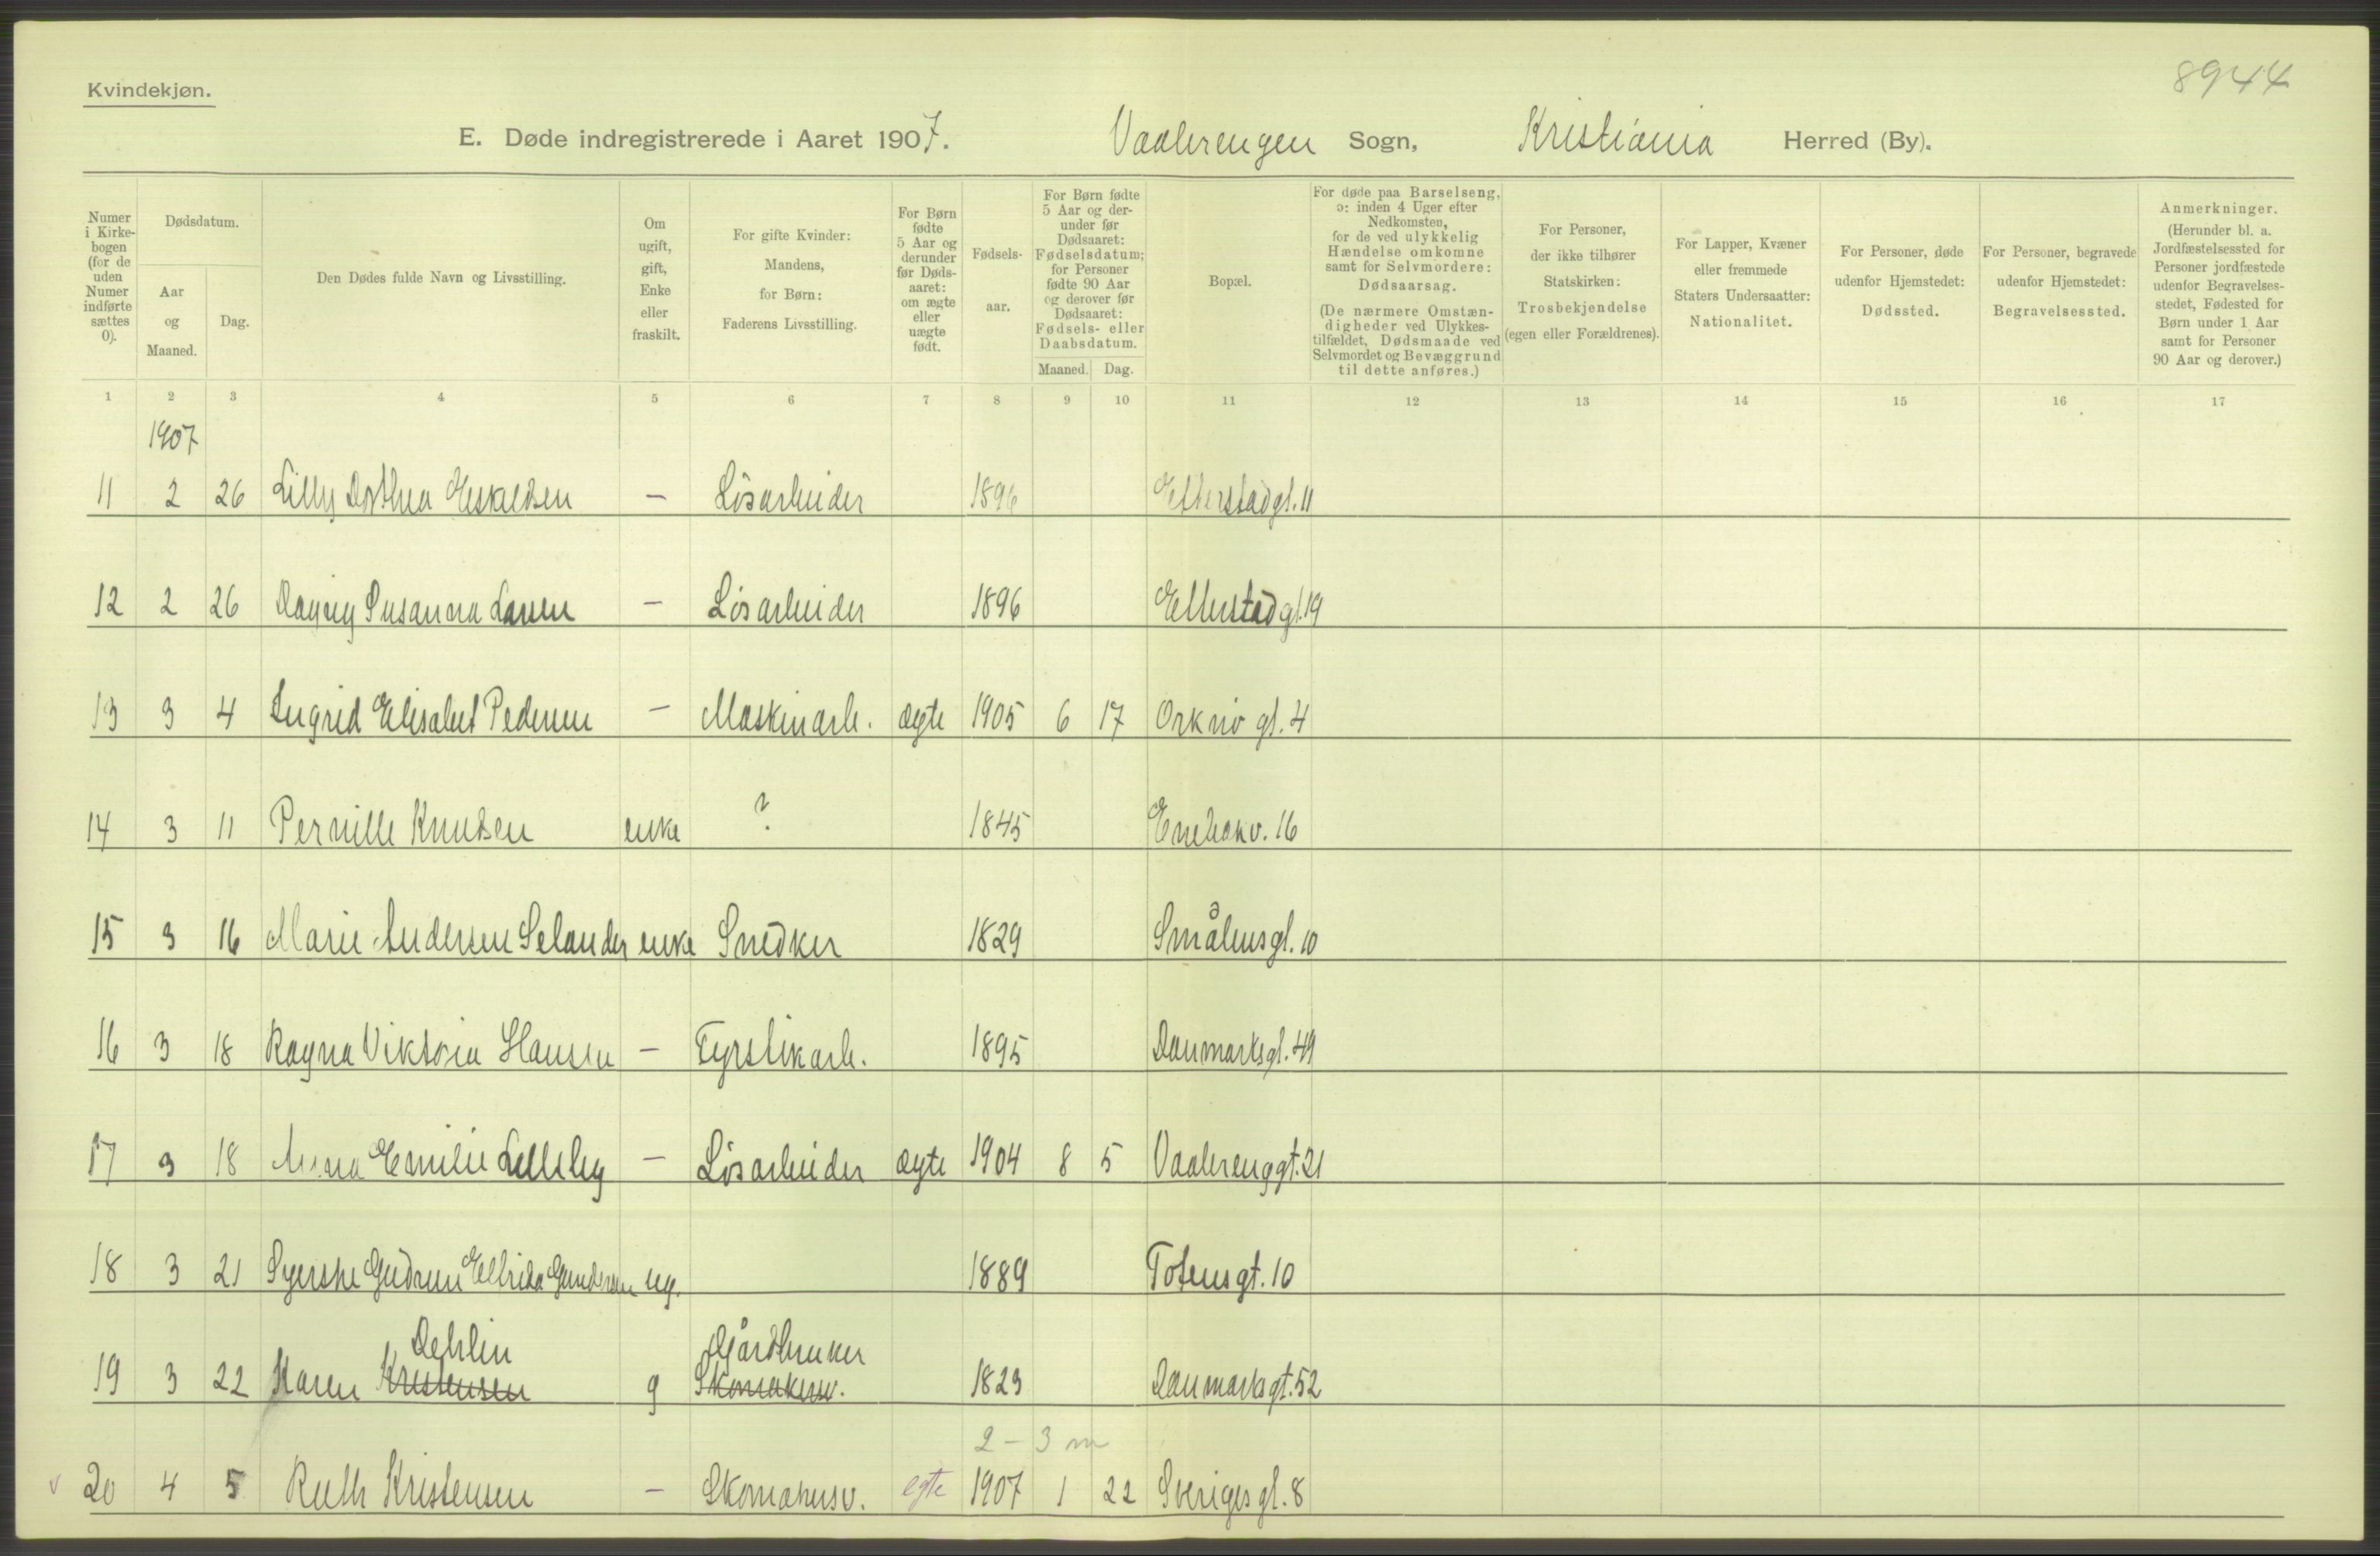 8944
Kvindekjøn.
E. Døde indregistrerede i Aaret 1907. Vaalerengen Sogn, Kristiania Herred (By).
Numer i Kirkebogen (for de uden Numer indførte sættes 0). Dødsdatum. Aar og Maaned. Dag. Den Dødes fulde Navn og Livsstilling. Om ugift, gift, Enke eller fraskilt. For gifte Kvinder: Mandens, for Børn: Faderens Livsstilling. For Børn fødte 5 Aar og derunder før Dødsaaret: om ægte eller uægte født. Fødselsaar. For Børn fødte 5 Aar og derunder før Dødsaaret: Fødselsdatum; for Personer fødte 90 Aar og derover før Dødsaaret: Fødsels- eller Daabsdatum. Maaned. Dag. Bopæl. For døde paa Barselseng, ɔ: inden 4 Uger efter Nedkomsten, for de ved ulykkelig Hændelse omkomne samt for Selvmordere: Dødsaarsag. (De nærmere Omstændigheder ved Ulykkestilfældet, Dødsmaade ved Selvmordet og Bevæggrund til dette anføres.) For Personer, der ikke tilhører Statskirken: Trosbekjendelse (egen eller Forældrenes). For Lapper, Kvæner eller fremmede Staters Undersaatter: Nationalitet. For Personer, døde udenfor Hjemstedet: Dødssted. For Personer, begravede udenfor Hjemstedet: Begravelsessted. Anmerkninger. (Herunder bl. a. Jordfæstelsessted for Personer jordfæstede udenfor Begravelsesstedet, Fødested for Børn under 1 Aar samt for Personer 90 Aar og derover.)
1 2 3 4 5 6 7 8 9 10 11 12 13 14 15 16 17
1907
11 2 26 Lilly Dorthea Eskeldsen – Løsarbeider 1896 Etterstadgt. 11
12 2 26 Dagny Susanna Larsen – Løsarbeider 1896 Etterstadgt. 19
13 3 4 Ingrid Elisabet Pedersen – Maskinarb. ægte 1905 6 17 Orknø gt. 4
14 3 11 Pernille Knudsen enke ? 1845 Enebakv. 16
15 3 16 Marie Andersen Selander enke Snedker 1829 Smålensgt. 10
16 3 18 Ragna Viktoria Hansen – Fyrstikarb. 1895 Danmarksgt. 49
17 3 18 Anna Emilie Lilleby – Løsarbeider ægte 1904 8 5 Vaalerenggt. 21
18 3 21 Syerske Gudrun Elfrida Gundersen ug. 1889 Totensgt. 10
Dehlin Gårdbruker
19 3 22 Karen Kristensen g Skomakersv. 1823 Danmarksgt. 52
2 – 3 m
v 20 4 5 Ruth Kristensen – Skomakersv. egte 1907 1 22 Sverigesgt. 8